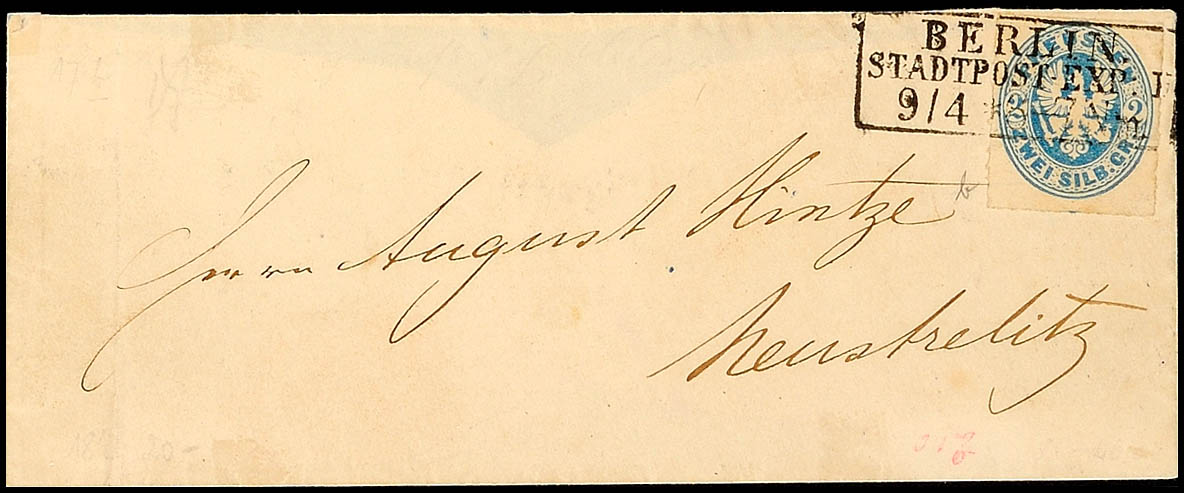 BERLIN.
STADTPOST-EXP.
9/4
2
ZWEI SILB. GR.
Herrn August Hintze
b
Neustrelitz